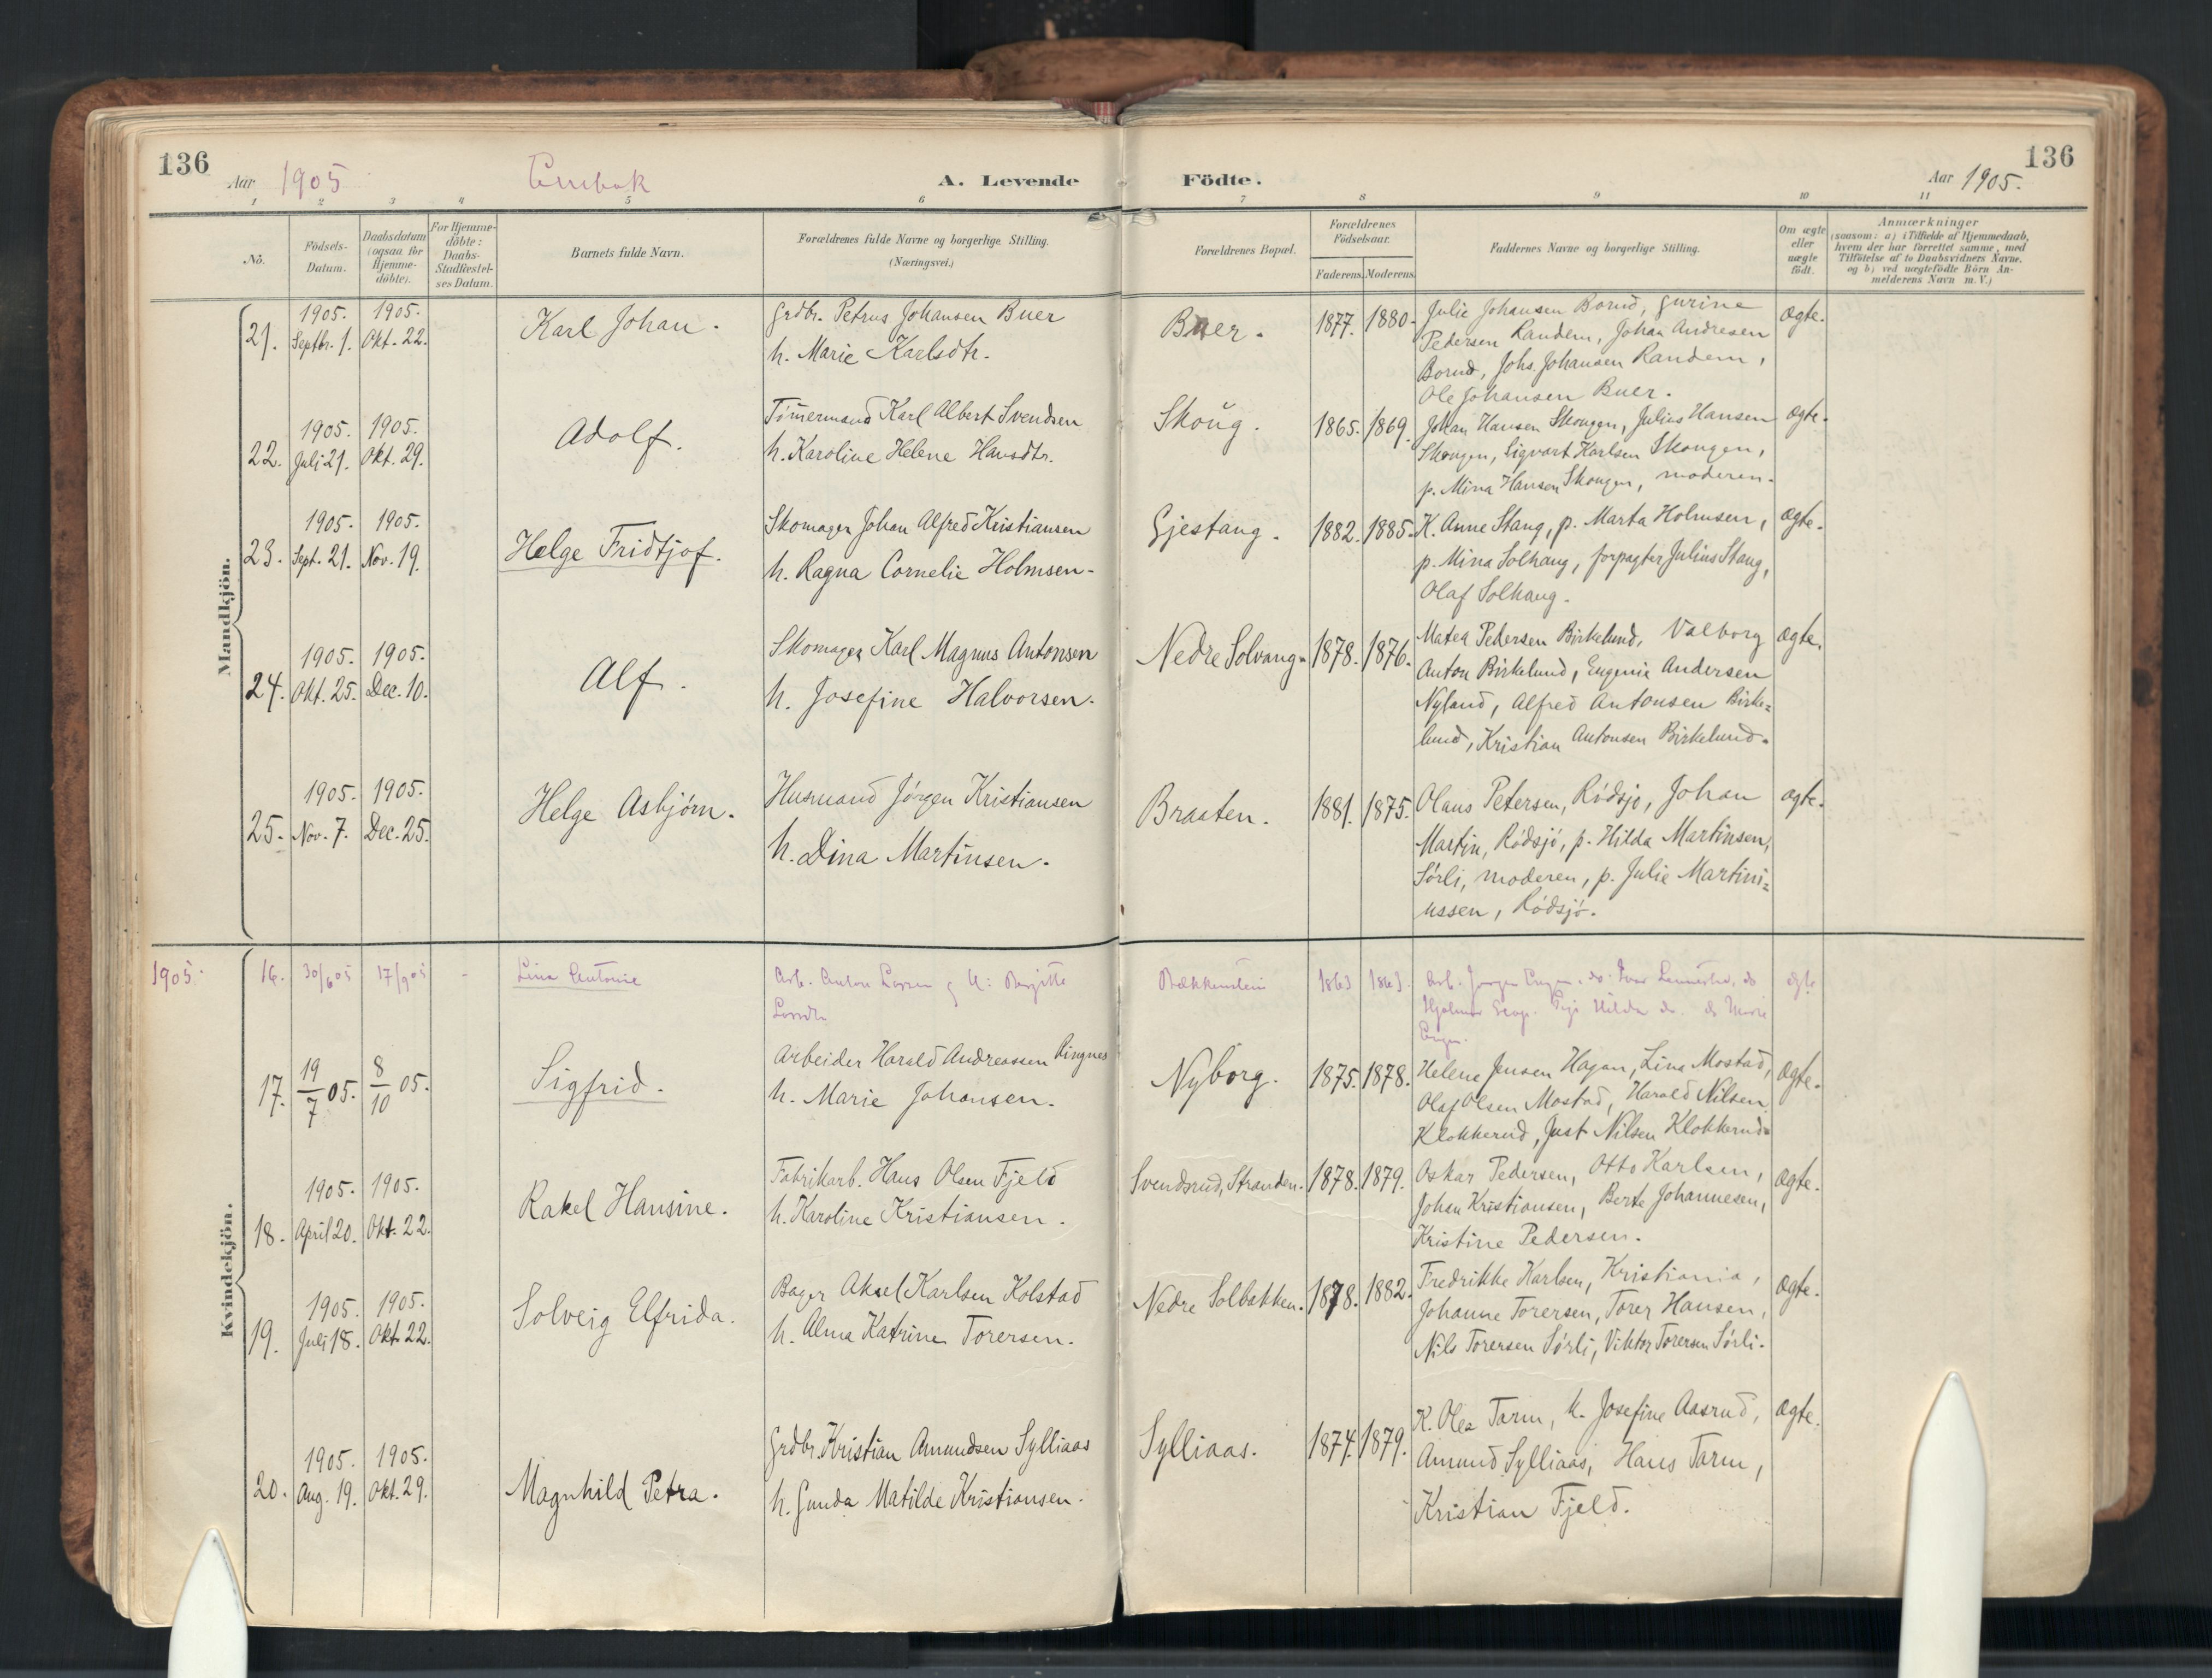 136
Aar 1905
Enebak
A. Levende Fødte.
Aar 1905.
136
1 2 3 4 5 6 7 8 9 10 11
No.
Födsels-Datum.
Daabsdatum (ogsaa for Hjemme-döbte).
For Hjemme-döbte: Daabs-Stadfæstel-ses Datum.
Barnets fulde Navn.
Forældrenes fulde Navne og borgerlige Stilling.
(Næringsvei.)
Forældrenes Bopæl.
Forældrenes Födselsaar.
Faderens. Moderens.
Faddernes Navne og borgerlige Stilling.
Om ægte eller uægte födt.
Anmærkninger
(saasom: a) i Tilfælde af Hjemmedaab,
hvem der har forrettet samme, med
Tilföielse af to Daabsvidners Navne,
og b) ved uægtefödte Börn An-
melderens Navn m. V.)
Mandkjön.
21. 1905. Septbr. 1. 1905. Okt. 22. Karl Johan.
Grdbr. Petrus Johansen Buer
h. Marie Karlsdtr.
Buer. 1877. 1880.
Julie Johansen Borud, Gurine
Pedersen Randem, Johan Andresen
Borud, Johs. Johansen Randem,
Ole Johansen Buer.
Ægte.
22. 1905. Juli 21. 1905. Okt. 29. Adolf.
Tömermand Karl Albert Svendsen
h. Karoline Helene Hansdtr.
Skoug. 1865. 1869.
Johan Hansen Skougen, Julius Hansen
Skougen, Sigvart Karlsen Skougen,
p. Mina Hansen Skougen, moderen.
Ægte.
23. 1905. Sept. 21. 1905. Nov. 19. Helge Fridtjof.
Skomager Johan Alfred Kristiansen
h. Ragna Cornelie Holmsen.
Gjestang. 1882. 1885.
K. Anne Stang, p. Marta Holmsen,
p. Mina Solhaug, forpagter Julius Stang,
Olaf Solhaug.
Ægte.
24. 1905. Okt. 25. 1905. Dec. 10. Alf.
Skomager Karl Magnus Antonsen
h. Josefine Halvorsen.
Nedre Solvang. 1878. 1876.
Matea Pedersen Birkelund, Valborg
Anton Birkelund, Eugenie Andersen
Nyland, Alfred Antonsen Birke=
lund, Kristian Antonsen Birkelund.
Ægte.
25. 1905. Nov. 7. 1905. Dec. 25. Helge Asbjörn.
Husmand Jörgen Kristiansen
h. Dina Martinsen.
Braaten. 1881. 1875.
Olaus Petersen, Rödsjö, Johan
Martin, Rödsjö, p. Hilda Martinsen,
Sörli, moderen, p. Julie Martini=
ussen, Rödsjö.
ægte.
Kvindekjön.
1905. 16. 30/6 05 17/9 05 - Lina Antonie
Arb. Anton Larsen og H: Birgitte
Bækkensten 1863 1863.
Hjalmar Hilda do. Marie
ægte
17. 19/7 05. 8/10 05. Sigfrid.
Arbeider Harald Andreassen Ringnes
h. Marie Johansen.
Nyborg. 1875. 1878.
Helene Jensen Hagan, Lina Mostad,
Olaf Olsen Mostad, Harald Nilsen
Klokkerud, Just Nilsen Klokkerud.
Ægte.
18. 1905. April 20. 1905. Okt. 22. Rakel Hansine.
Fabrikarb. Hans Olsen Fjeld
h. Karoline Kristiansen.
Svendsrud, Stranden. 1878. 1879.
Oskar Pedersen, Otto Karlsen,
Johan Kristiansen, Berte Johannesen,
Kristine Pedersen.
Ægte.
19. 1905. Juli 18. 1905. Okt. 22. Solveig Elfrida.
Bager Aksel Karlsen Kolstad
h. Alma Katrine Torersen.
Nedre Solbakken. 1878. 1882.
Fredrikke Karlsen, Kristiania,
Johanne Torersen, Torer Hansen,
Nils Torersen Sörli, Viktor Torersen Sörli.
Ægte.
20. 1905. Aug. 19. 1905. Okt. 29. Magnhild Petra.
Grdbr. Kristian Amundsen Sylliaas
h. Gunda Matilde Kristiansen.
Sylliaas. 1874. 1879.
K. Olea Tarm, k. Josefine Aasrud,
Amund Sylliaas, Hans Tarm,
Kristian Fjeld.
Ægte.